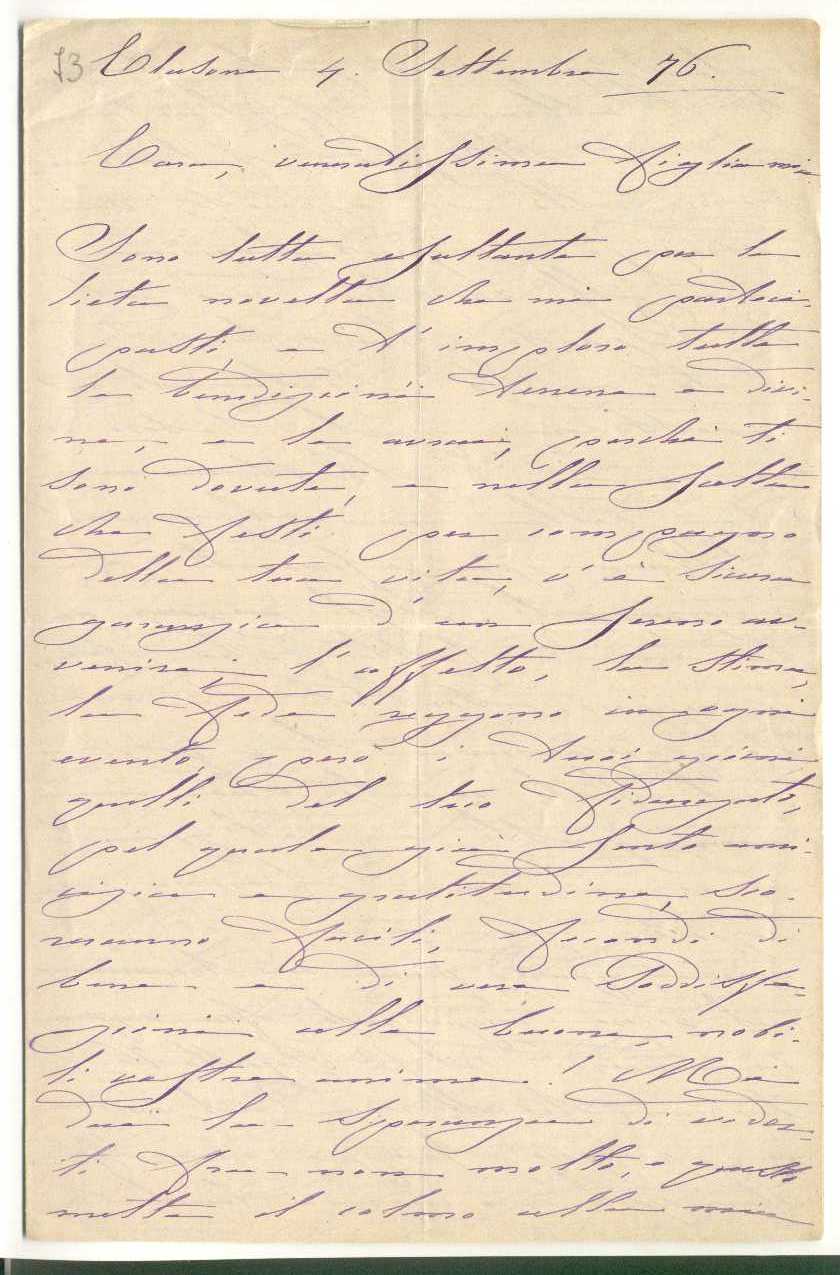 73 Clusone 4. Settembre 76.
Cara, veneratissima Figlia mia
Sono tutta esultante per la
lieta novella che mi parteci-
pasti, e t'imploro tutte
le benedizioni terrene e divi-
ne, e le avrai, perchè ti
sono dovute, e nella scelta
che festi per compagno
della tua vita, v'è sicura
garanzia d'un sereno av-
venire; l'affetto, la stima,
la fede reggono in ogni
evento, però i tuoi giorni
quelli del tuo Fidanzato,
pel quale già sento ami-
cizia e gratitudine, sco-
reranno facili, fecondi di
bene e di vere soddisfa-
zioni alle buone, nobi-
li vostre anime! Mi
dai la speranza di veder-
ti fra non molto, e questo
mette il colmo alla mia